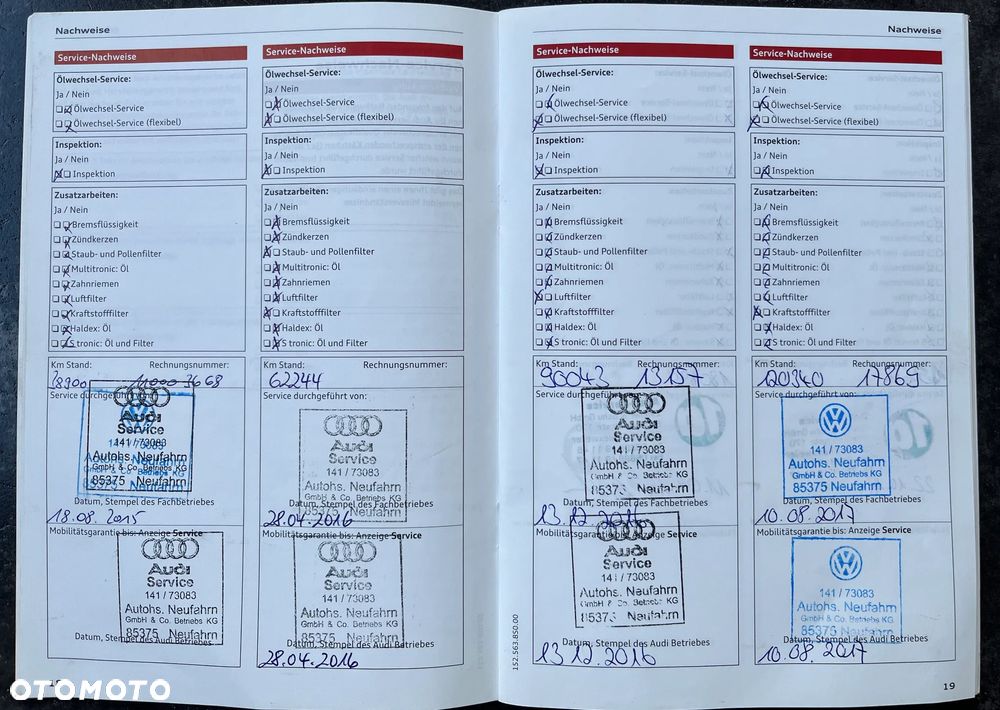 Nachweise
Service-Nachweise
Ölwechsel-Service:
Ja / Nein
Ölwechsel-Service
Ölwechsel-Service (flexibel)
Inspektion:
Ja / Nein
Inspektion
Zusatzarbeiten:
Ja / Nein
Bremsflüssigkeit
Zündkerzen
Staub- und Pollenfilter
Multitronic: Öl
Zahnriemen
Luftfilter
Kraftstofffilter
Haldex: Öl
S tronic: Öl und Filter
Km Stand: Rechnungsnummer:
Service durchgeführt von:
Audi
Service
141 / 73083
Autohs. Neufahrn
GmbH & Co. Betriebs KG
85375 Neufahrn
Datum, Stempel des Fachbetriebes
18.08.2015
Mobilitätsgarantie bis: Anzeige Service
Audi
Service
141 / 73083
Autohs. Neufahrn
GmbH & Co. Betriebs KG
85375 Neufahrn
Datum, Stempel des Audi Betriebes
Service-Nachweise
Ölwechsel-Service:
Ja / Nein
Ölwechsel-Service
Ölwechsel-Service (flexibel)
Inspektion:
Ja / Nein
Inspektion
Zusatzarbeiten:
Ja / Nein
Bremsflüssigkeit
Zündkerzen
Staub- und Pollenfilter
Multitronic: Öl
Zahnriemen
Luftfilter
Kraftstofffilter
Haldex: Öl
S tronic: Öl und Filter
Km Stand: Rechnungsnummer:
62244
Service durchgeführt von:
Audi
Service
141 / 73083
Autohs. Neufahrn
GmbH & Co. Betriebs KG
85375 Neufahrn
Datum, Stempel des Fachbetriebes
28.04.2016
Mobilitätsgarantie bis: Anzeige Service
Audi
Service
141 / 73083
Autohs. Neufahrn
GmbH & Co. Betriebs KG
85375 Neufahrn
Datum, Stempel des Audi Betriebes
28.04.2016
Nachweise
Service-Nachweise
Ölwechsel-Service:
Ja / Nein
Ölwechsel-Service
Ölwechsel-Service (flexibel)
Inspektion:
Ja / Nein
Inspektion
Zusatzarbeiten:
Ja / Nein
Bremsflüssigkeit
Zündkerzen
Staub- und Pollenfilter
Multitronic: Öl
Zahnriemen
Luftfilter
Kraftstofffilter
Haldex: Öl
S tronic: Öl und Filter
Km Stand: Rechnungsnummer:
90043 13157
Service durchgeführt von:
Audi
Service
141 / 73083
Autohs. Neufahrn
GmbH & Co. Betriebs KG
85375 Neufahrn
Datum, Stempel des Fachbetriebes
13.12.2016
Mobilitätsgarantie bis: Anzeige Service
Audi
Service
141 / 73083
Autohs. Neufahrn
GmbH & Co. Betriebs KG
85375 Neufahrn
Datum, Stempel des Audi Betriebes
13.12.2016
152.563.850.00
Service-Nachweise
Ölwechsel-Service:
Ja / Nein
Ölwechsel-Service
Ölwechsel-Service (flexibel)
Inspektion:
Ja / Nein
Inspektion
Zusatzarbeiten:
Ja / Nein
Bremsflüssigkeit
Zündkerzen
Staub- und Pollenfilter
Multitronic: Öl
Zahnriemen
Luftfilter
Kraftstofffilter
Haldex: Öl
S tronic: Öl und Filter
Km Stand: Rechnungsnummer:
120340 17869
Service durchgeführt von:
141 / 73083
Autohs. Neufahrn
GmbH & Co. Betriebs KG
85375 Neufahrn
Datum, Stempel des Fachbetriebes
10.08.2017
Mobilitätsgarantie bis: Anzeige Service
141 / 73083
Autohs. Neufahrn
GmbH & Co. Betriebs KG
85375 Neufahrn
Datum, Stempel des Audi Betriebes
10.08.2017
19
OTOMOTO